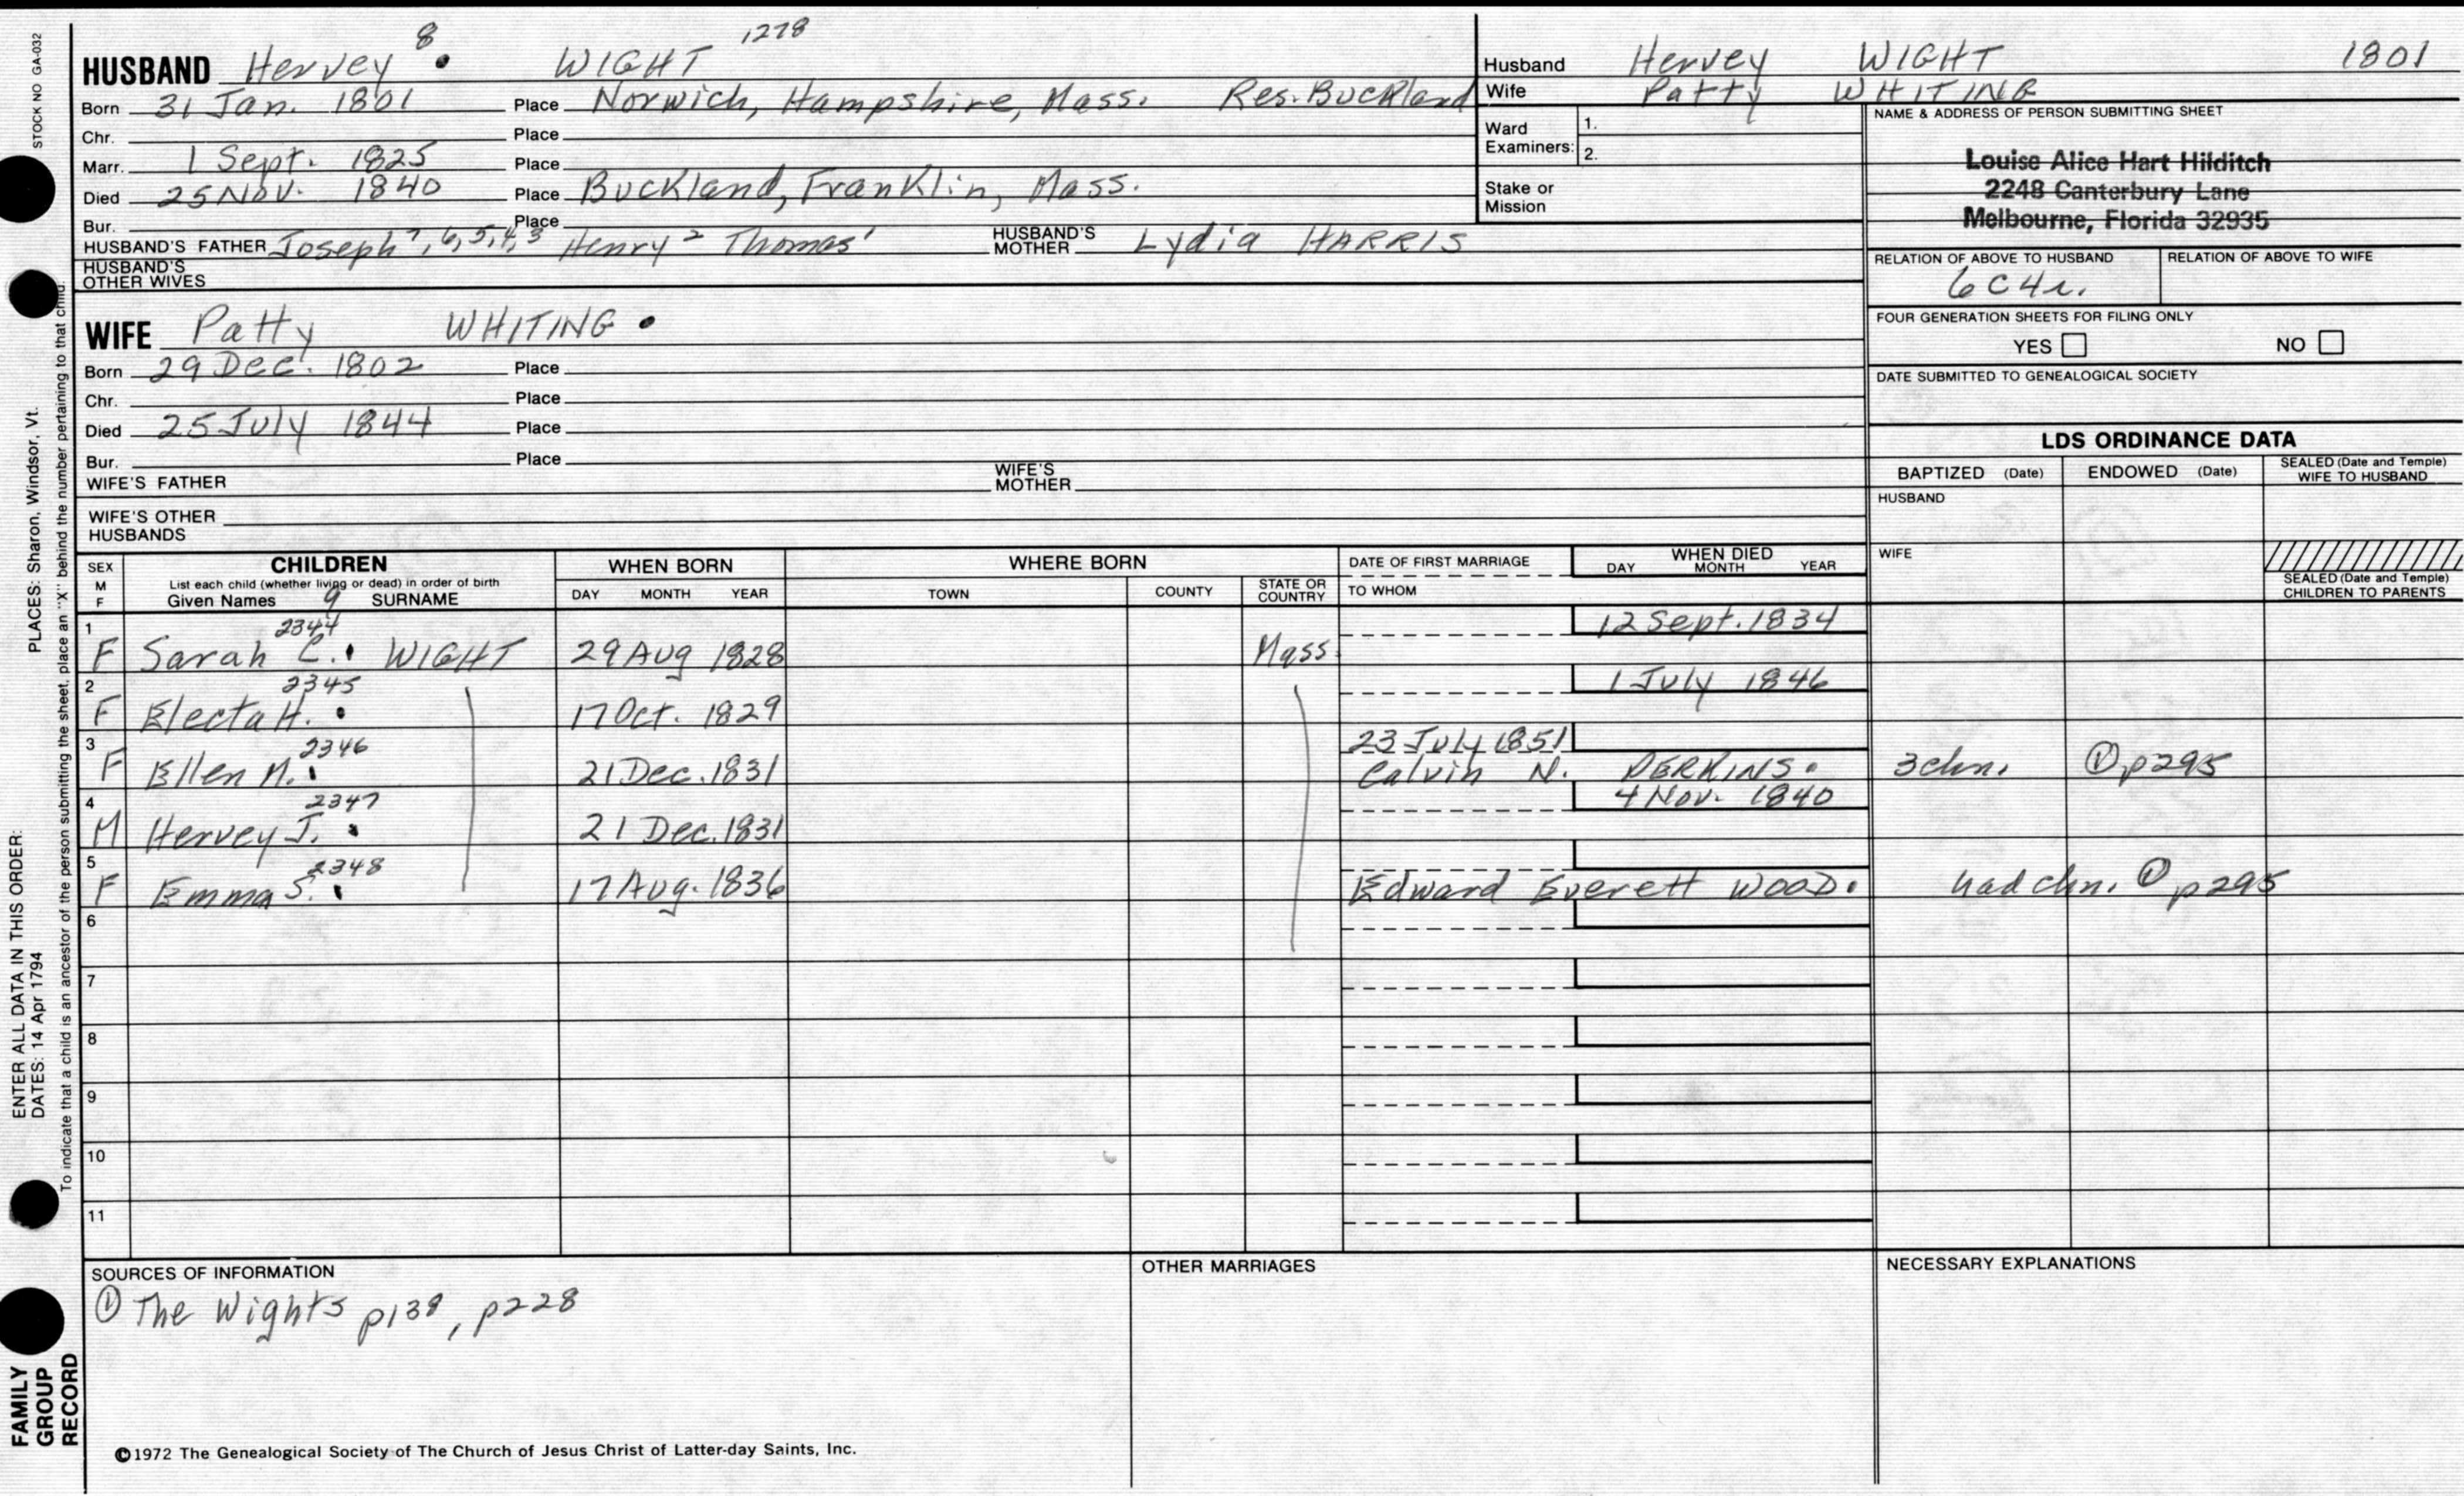 STOCK NO GA-032
HUSBAND Hervey 8 WIGHT 1278
Born 31 Jan. 1801 Place Norwich, Hampshire, Mass. Res. Buckland
Chr. Place
Marr. 1 Sept. 1825 Place
Died 25 Nov. 1840 Place Buckland, Franklin, Mass.
Bur. Place
HUSBAND'S FATHER Joseph 7, 6, 5, 4, 3 Henry 2 Thomas 1 HUSBAND'S MOTHER Lydia HARRIS
HUSBAND'S OTHER WIVES
WIFE Patty WHITING
Born 29 Dec. 1802 Place
Chr. Place
Died 25 July 1844 Place
Bur. Place
WIFE'S FATHER WIFE'S MOTHER
WIFE'S OTHER HUSBANDS
Husband Hervey WIGHT 1801
Wife Patty WHITING
Ward Examiners: 1.
2.
Stake or Mission
NAME & ADDRESS OF PERSON SUBMITTING SHEET
Louise Alice Hart Hilditch
2248 Canterbury Lane
Melbourne, Florida 32935
RELATION OF ABOVE TO HUSBAND RELATION OF ABOVE TO WIFE
6C4r.
FOUR GENERATION SHEETS FOR FILING ONLY
YES NO
DATE SUBMITTED TO GENEALOGICAL SOCIETY
LDS ORDINANCE DATA
BAPTIZED (Date) ENDOWED (Date) SEALED (Date and Temple) WIFE TO HUSBAND
HUSBAND
WIFE
SEALED (Date and Temple) CHILDREN TO PARENTS
SEX M F CHILDREN WHEN BORN WHERE BORN DATE OF FIRST MARRIAGE WHEN DIED
List each child (whether living or dead) in order of birth
Given Names 9 SURNAME DAY MONTH YEAR TOWN COUNTY STATE OR COUNTRY TO WHOM DAY MONTH YEAR
1 2344 12 Sept. 1834
F Sarah C. WIGHT 29 Aug 1828 Mass.
2 2345 1 July 1846
F Electa H. 17 Oct. 1829
3 2346 23 July 1851
F Ellen M. 21 Dec. 1831 Calvin N. PERKINS. 3chn. ① p295
4 2347 4 Nov. 1840
M Hervey J. 21 Dec. 1831
5 2348
F Emma S. 17 Aug. 1836 Edward Everett WOOD. had chn. ① p295
6
7
8
9
10
11
SOURCES OF INFORMATION OTHER MARRIAGES NECESSARY EXPLANATIONS
① The Wights p138, p228
©1972 The Genealogical Society of The Church of Jesus Christ of Latter-day Saints, Inc.
ENTER ALL DATA IN THIS ORDER: PLACES: Sharon, Windsor, Vt.
DATES: 14 Apr 1794
To indicate that a child is an ancestor of the person submitting the sheet, place an "X" behind the number pertaining to that child.
FAMILY
GROUP
RECORD